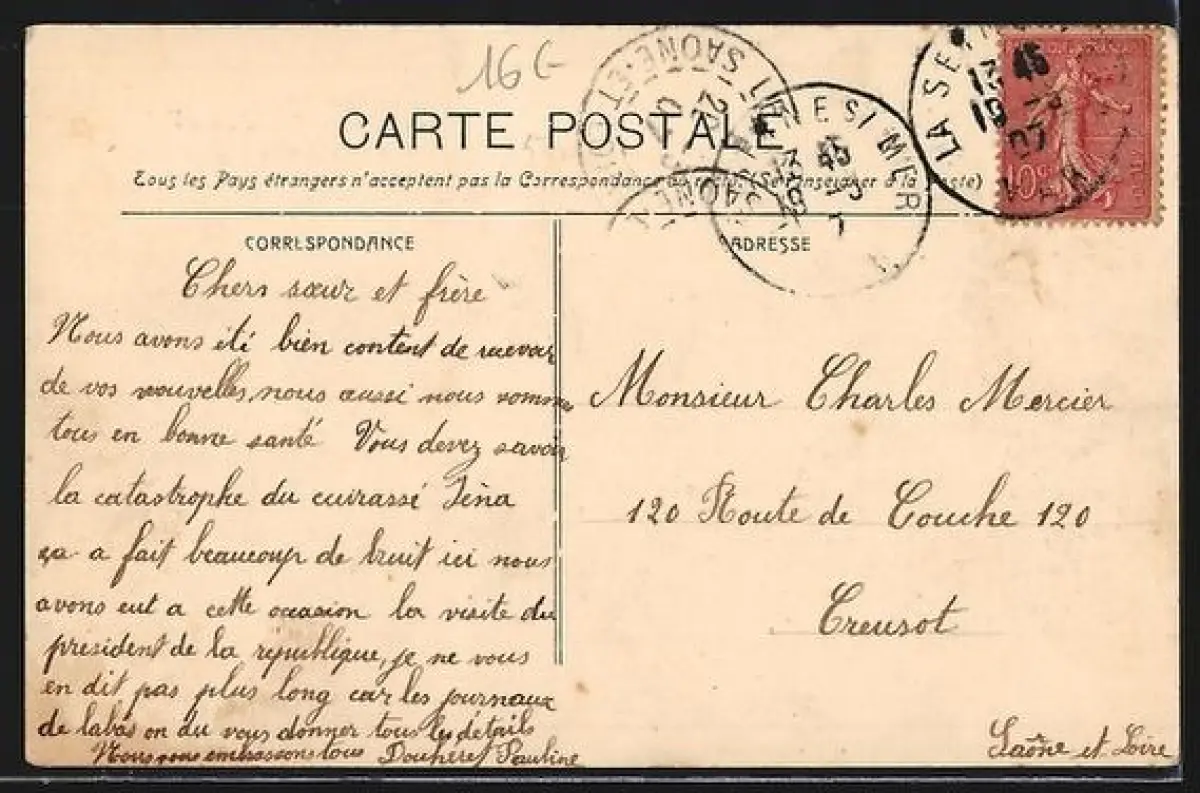 16 G-
CARTE POSTALE
Tous les Pays étrangers n'acceptent pas la Correspondance au recto. (Se renseigner à la Poste)
LA SEYNE S/ MER
13 45
19 -3
7
LA SEYNE
13 45
19 -3
07
VAR
SAONE-ET-L
10c
CORRESPONDANCE
Chers sœur et frère
Nous avons été bien content de recevoir
de vos nouvelles, nous aussi nous somme
tous en bonne santé Vous devez savoir
la catastrophe du cuirassé Iéna
ça a fait beaucoup de bruit ici nous
avons eut a cette occasion la visite du
président de la république, je ne vous
en dit pas plus long car les journaux
de labas on du vous donner tous les détails
Nous vous embrassons tous Doucheret Pauline
ADRESSE
Monsieur Charles Mercier
120 Route de Couche 120
Creusot
Saône et Loire